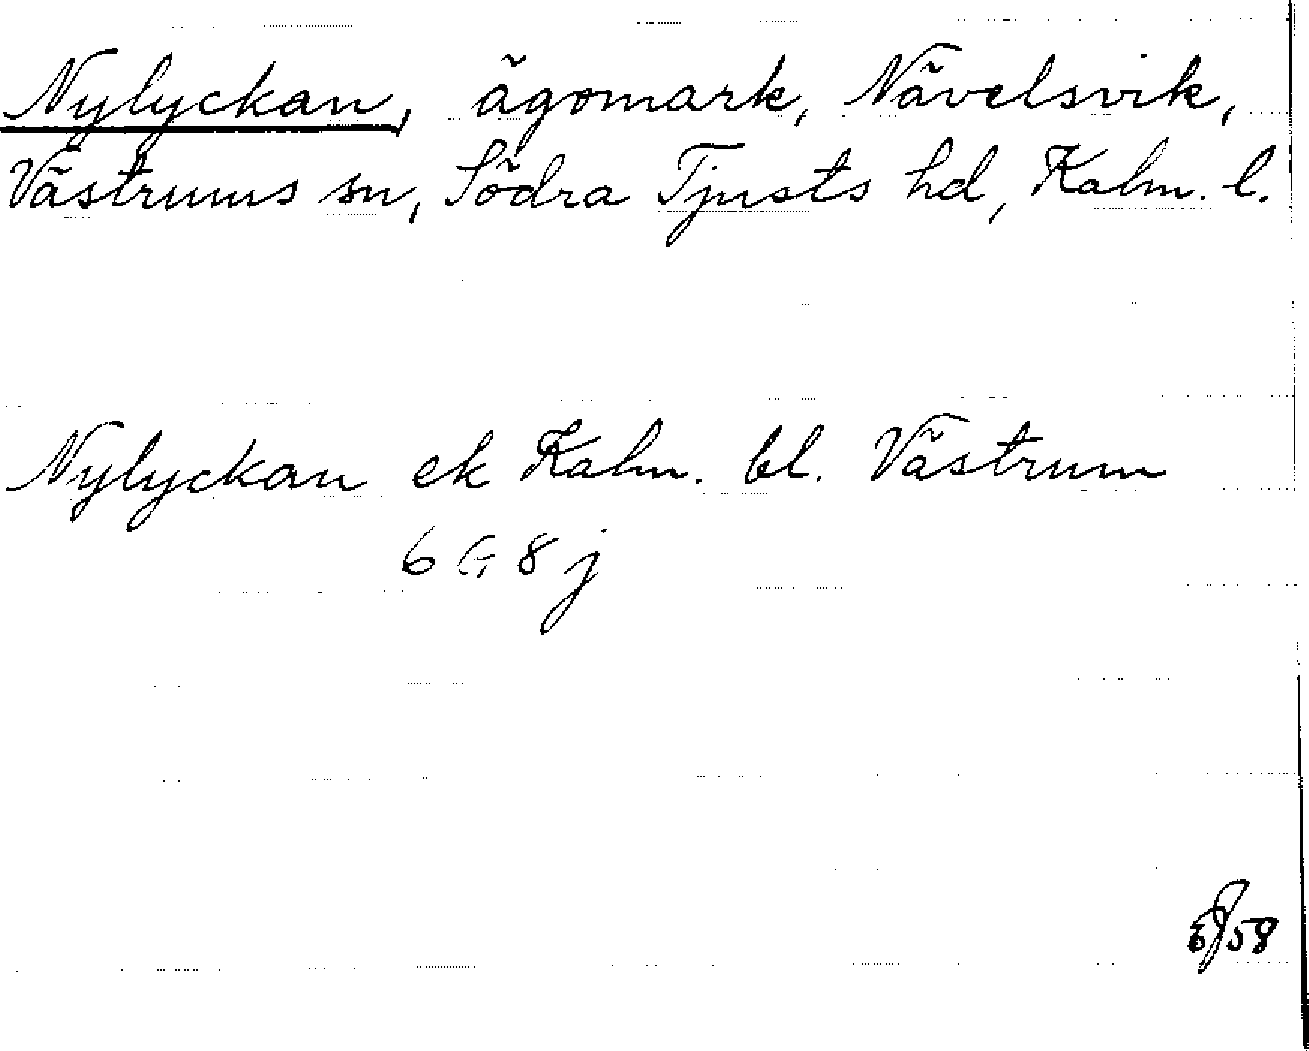 Nylyckan, ägomark, Nävelsvik,
Västrums sn, Södra Tjusts hd, Kalm. l.
Nylyckan ek Kalm. bl. Västrum
6 G 8 j